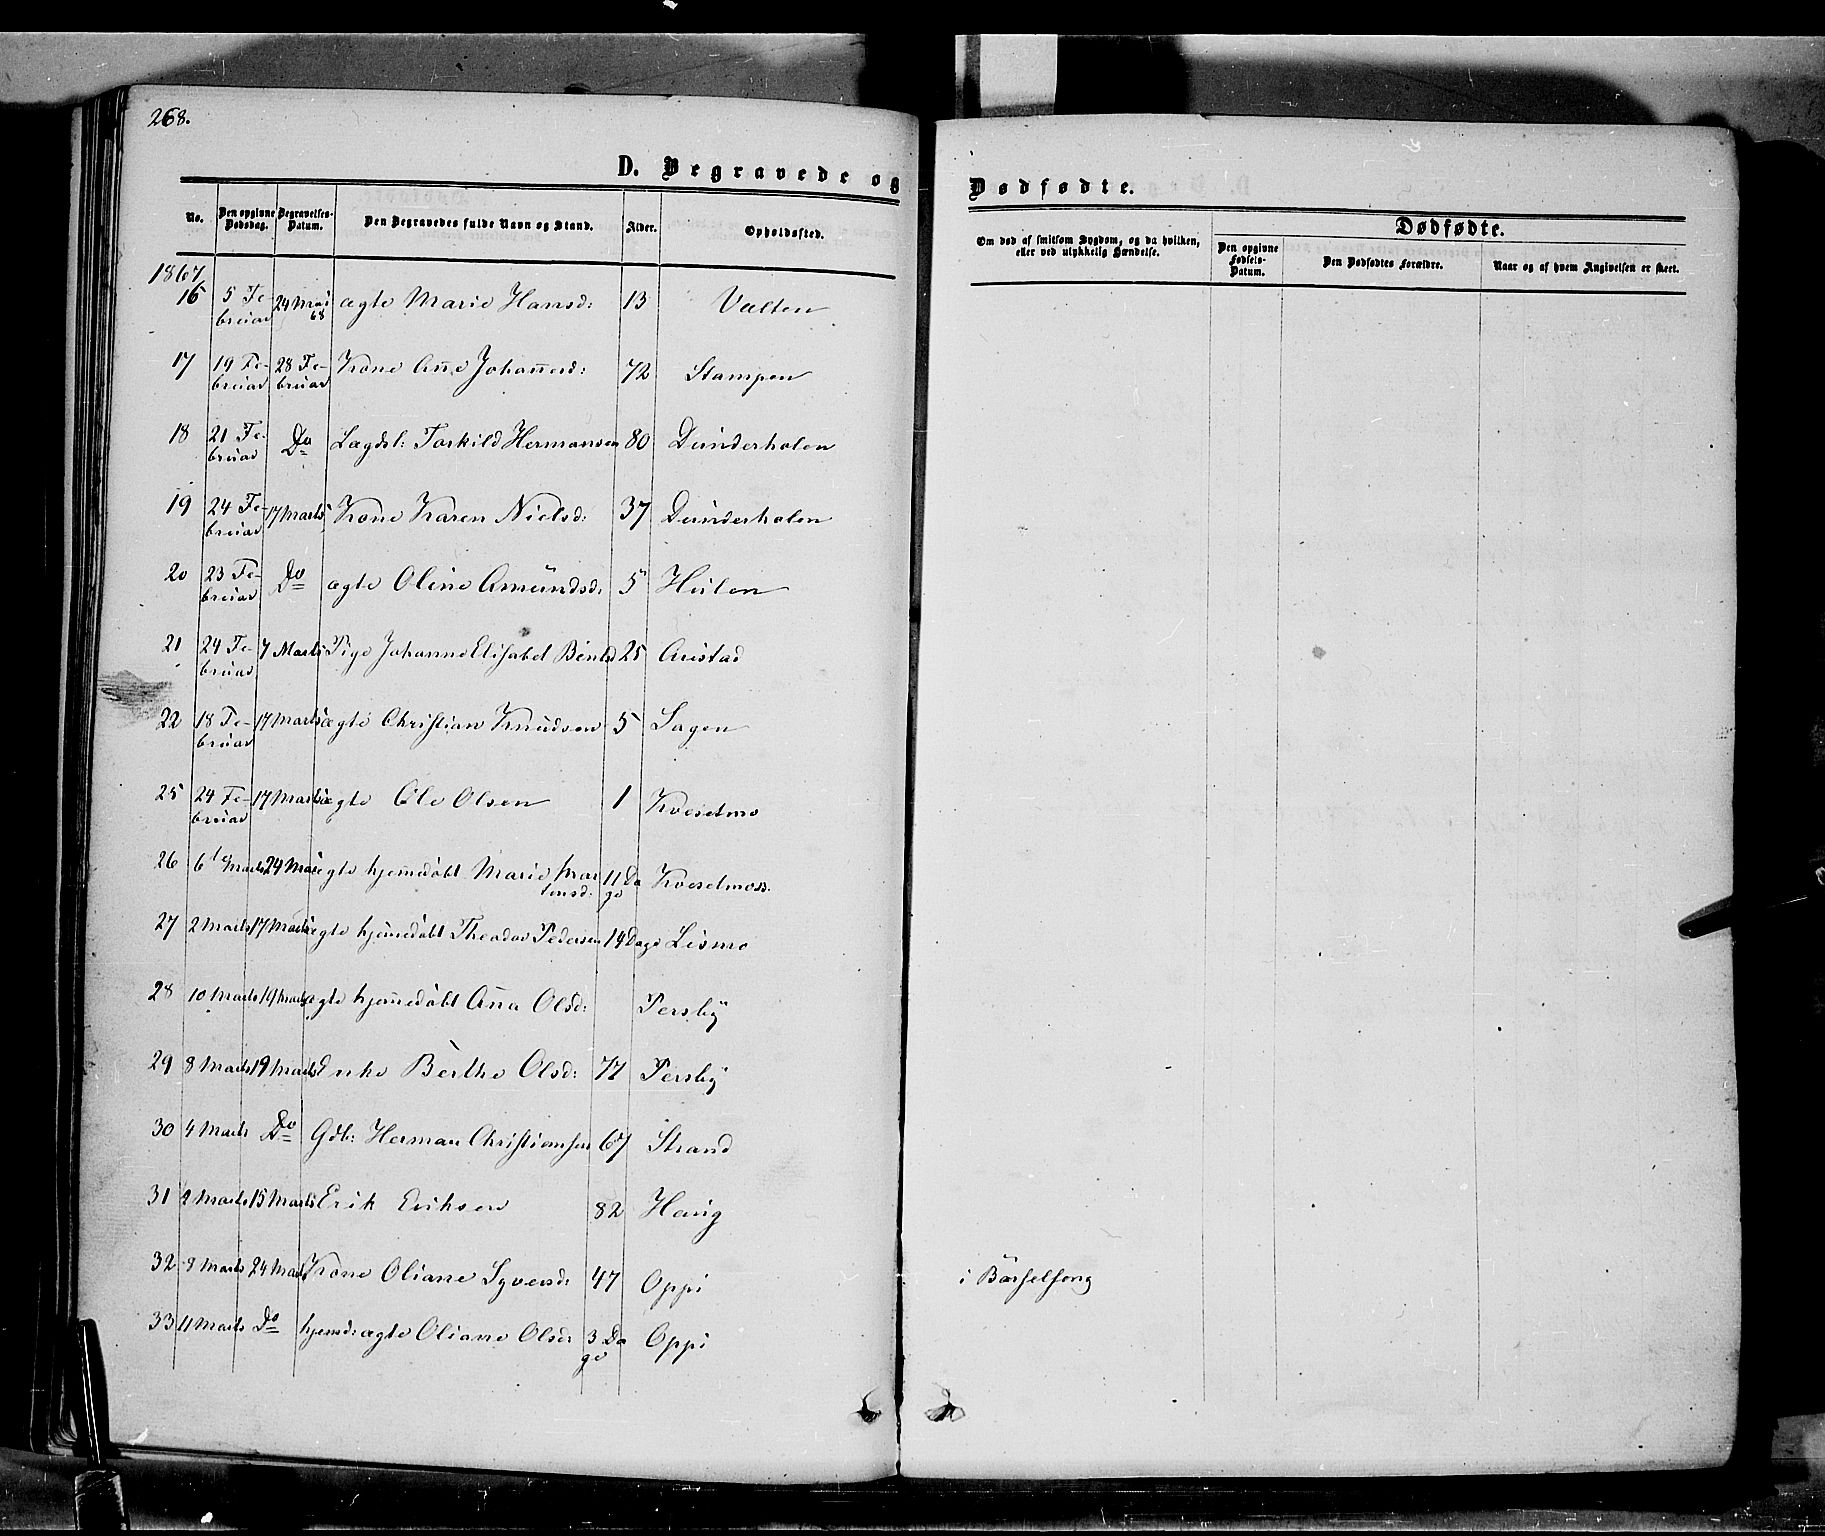 268.
D. Begravede og
Dødfødte.
No. Den opgivne Dødsdag. Begravelses-Datum. Den Begravedes fulde Navn og Stand. Alder. Opholdssted.
Om død af smitsom Sygdom, og da hvilken, eller ved ulykkelig Hændelse.
Dødfødte.
Den opgivne Fødsels-Datum. Den Dødfødtes Forældre. Naar og af hvem Angivelsen er skeet.
1867
16 5 Februar 24 Mai 68 ægte Marie Hansd: 13 Valten
17 19 Februar 28 Februar Kone Añe Johañesd: 72 Stampen
18 21 Februar Do Lægdsl: Torkild Hermansen 80 Dunderholen
19 24 Februar 17 Marts Kone Karen Nielsd: 37 Dunderholen
20 23 Februar Do ægte Oline Amundsd: 5 Hulen
21 24 Februar 7 Marts Pige Johanne Elisabet Bentsd 25 Austad
22 18 Februar 17 Marts ægte Christian Knudsen 5 Sagen
25 24 Februar 17 Marts ægte Ole Olsen 1 Kvesetmo
26 6te Marts 24 Mai ægte hjem̃edøbt Marie Martensd: 11 Dage Kvesetmo
27 2 Marts 17 Marts ægte hjem̃edøbt Theodor Pedersen 14 Dage Lismo
28 10 Marts 19 Marts ægte hjem̃edøbt Aña Olsd: Persby
29 8 Marts 19 Marts Enke Berthe Olsd: 77 Persby
30 4 Marts Do Gdb: Herman Christiansen 67 Strand
31 2 Marts 15 Marts Erik Eriksen 82 Haug
32 9 Marts 24 Marts Kone Oliane Syversd: 47 Oppi i Barselseng
33 11 Marts Do hjemd: ægte Oliane Olsd: 3 Dage Oppi